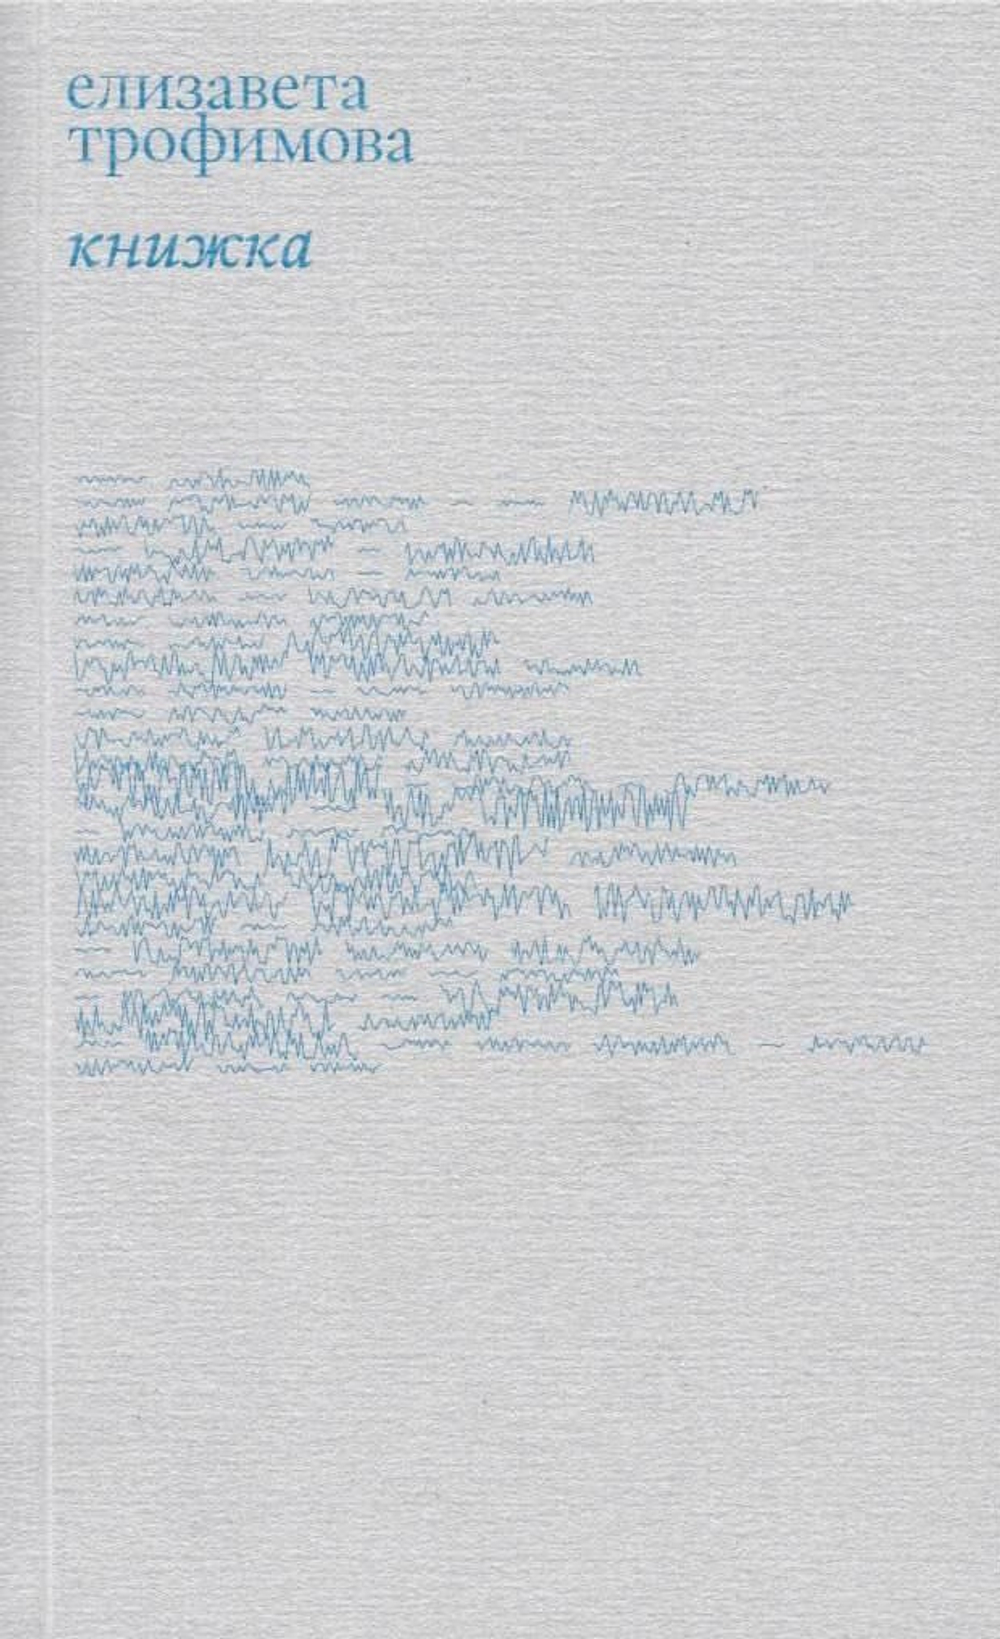 елизавета
трофимова
книжка